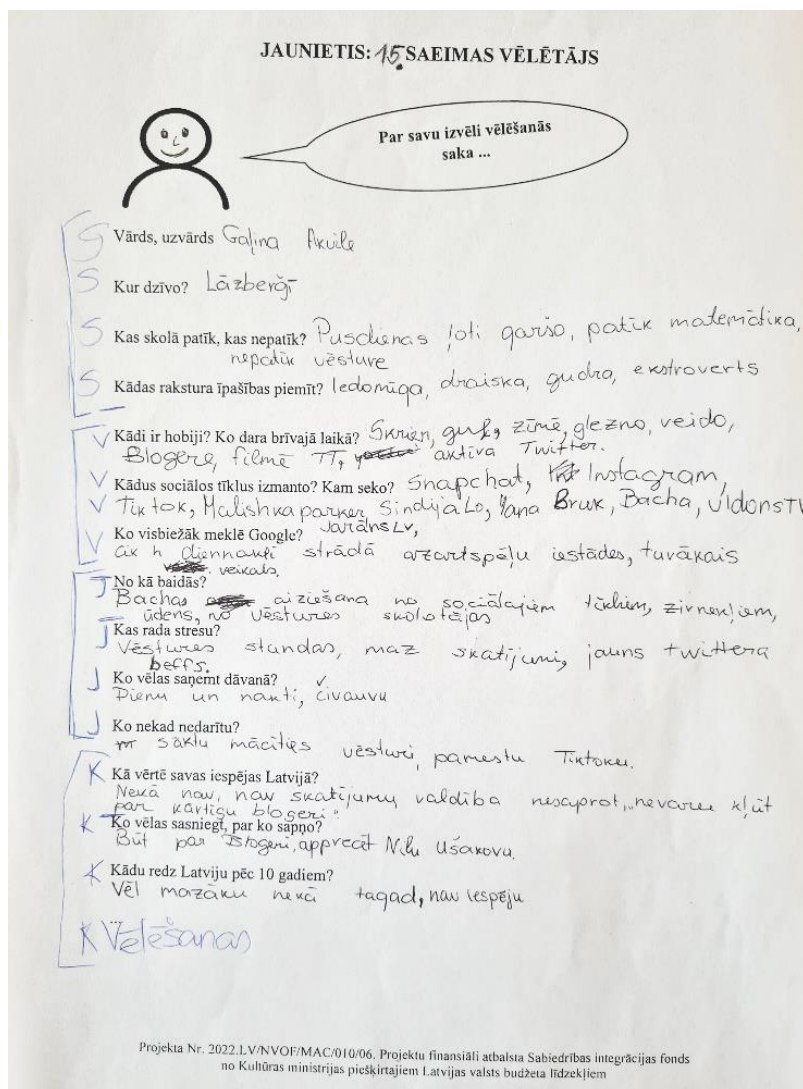 JAUNIETIS: 15. SAEIMAS VĒLĒTĀJS
Par savu izvēli vēlēšanās
saka ...
S Vārds, uzvārds Gaļina Akvile
S Kur dzīvo? Lāzberģī
S Kas skolā patīk, kas nepatīk? Pusdienas ļoti garšo, patīk matemātika,
nepatīk vēsture
S Kādas rakstura īpašības piemīt? Iedomīga, draiska, gudra, ekstroverts
V Kādi ir hobiji? Ko dara brīvajā laikā? Skrien, guļ, zīmē, glezno, veido,
Blogere, filmē TT, aktīva Twitter.
V Kādus sociālos tīklus izmanto? Kam seko? Snapchat, Instagram,
V Tiktok, Malishka parker, Sindija Lo, Yana Bruk, Bacha, vIdonsTV
V Ko visbiežāk meklē Google? JarānsLv,
cik h diennaktī strādā azartspēļu iestādes, tuvākais
veikals,
J No kā baidās?
Bachas aiziešana no sociālajiem tīkliem, zirnekļiem,
ūdens, no vēstures skolotājas
J Kas rada stresu?
Vēstures stundas, maz skatījumi, jauns twittera
beffs.
J Ko vēlas saņemt dāvanā?
Pienu un nakti, čivauvu
J Ko nekad nedarītu?
sāktu mācīties vēsturi, pamestu Tiktoku.
K Kā vērtē savas iespējas Latvijā?
Nekā nav, nav skatījumu, valdība nesaprot, "nevaru kļūt
par kārtīgu blogeri".
K Ko vēlas sasniegt, par ko sapņo?
Būt par Blogeri, apprecēt Nilu Ušakovu.
K Kādu redz Latviju pēc 10 gadiem?
Vēl mazāku nekā tagad, nav iespēju
K Vēlēšanas
Projekta Nr. 2022.LV/NVOF/MAC/010/06. Projektu finansiāli atbalsta Sabiedrības integrācijas fonds
no Kultūras ministrijas piešķirtajiem Latvijas valsts budžeta līdzekļiem